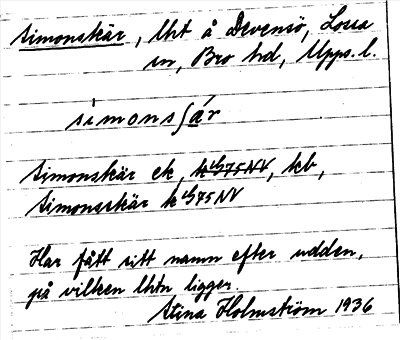 Simonskär, lht å Dävensö, Lossa
sn, Bro hd, Upps. l.
simonsʃár
Simonskär ek, k 4/G75NV, kb,
Simonsskär k 4/G75NV
Har fått sitt namn efter udden,
på vilken lhtn ligger.
Stina Holmström 1936